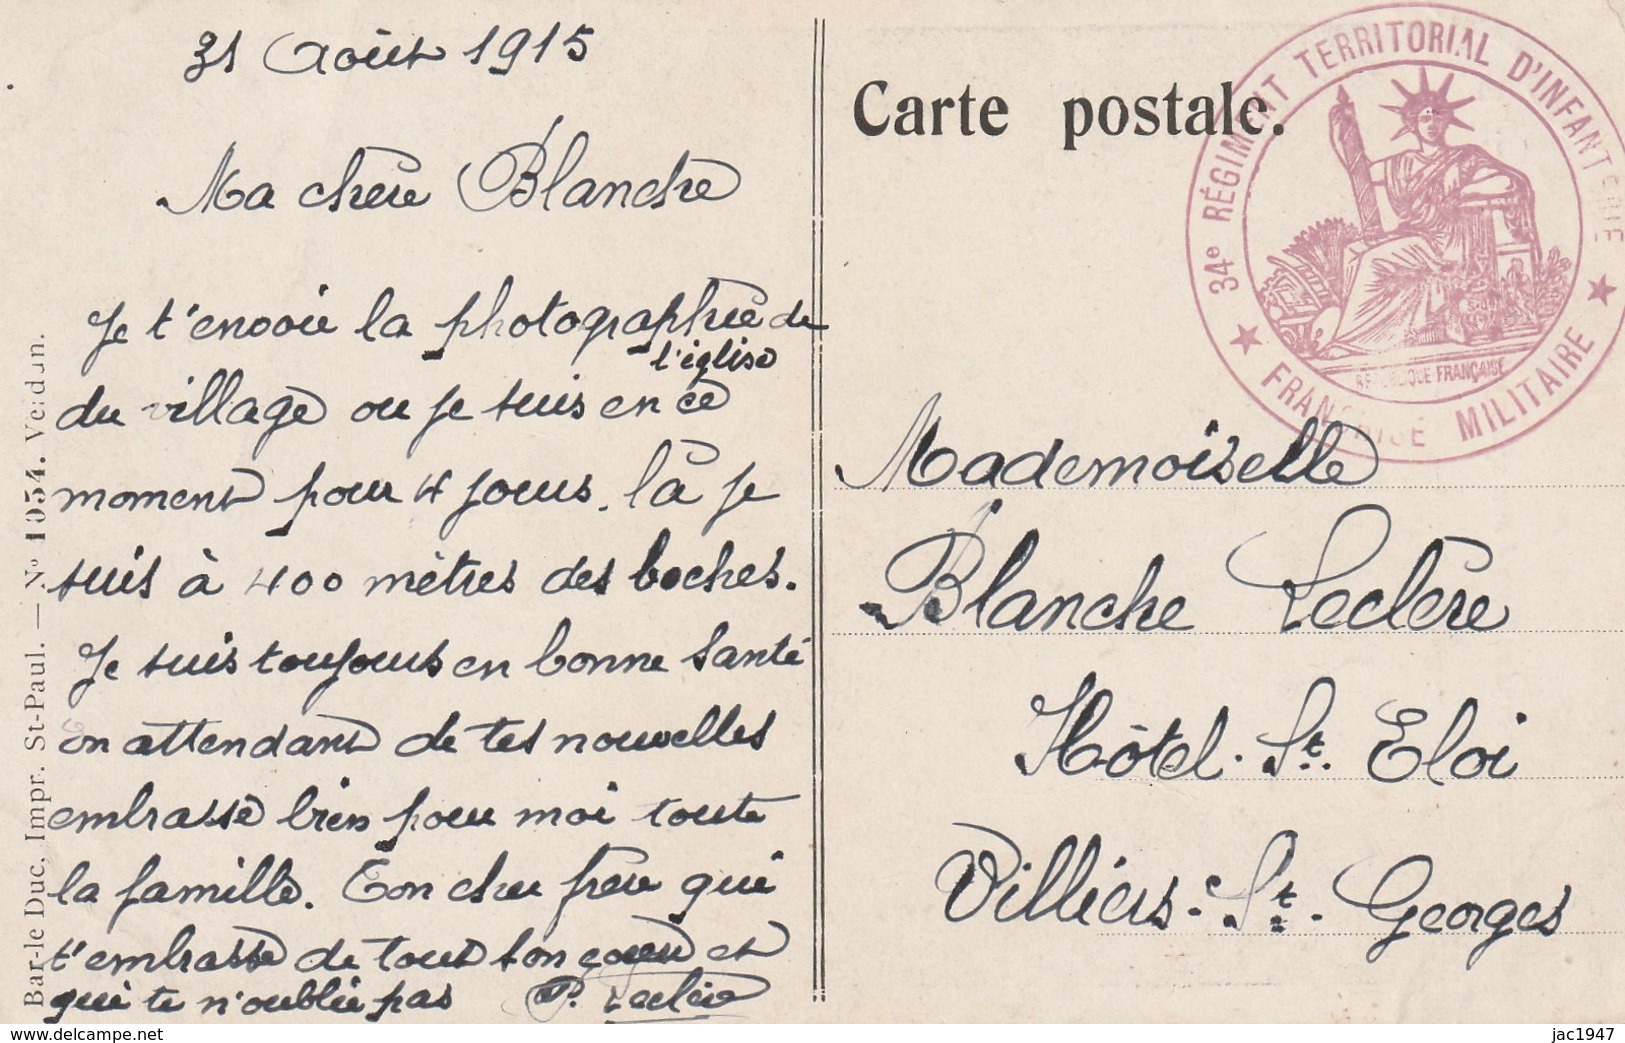 31 Août 1915
Ma chère Blanche
Je t'envoie la photographie de
l'église
du village ou je suis en ce
moment pour 4 jours. là je
suis à 400 mètres des boches.
Je suis toujours en bonne santé
en attendant de tes nouvelles
embrasse bien pour moi toute
la famille. Ton cher frère qui
t'embrasse de tout son coeur et
qui te n'oublie pas P. Leclère
Bar-le Duc, Impr. St-Paul. — No 1054. Verdun.
Carte postale.
34e RÉGIMENT TERRITORIAL D'INFANTERIE
RÉPUBLIQUE FRANÇAISE
★ FRANCHISE MILITAIRE ★
Mademoiselle
Blanche Leclère
Hôtel. St. Eloi
Villiers. St. Georges
www.delcampe.net
jac1947